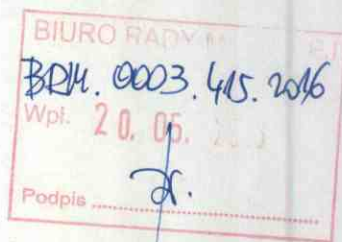 BIURO RADY
BRM. 0003. 415. 2016
Wpł. 20. 05.
Podpis